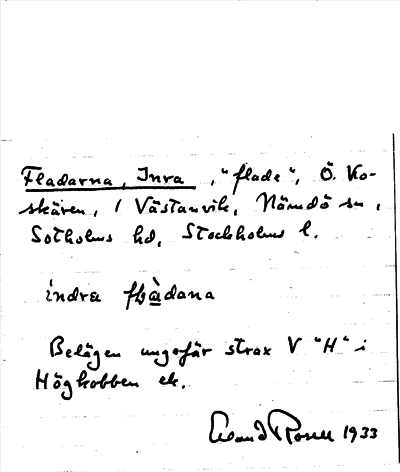 Fladarna, Inra, "flade", Ö. Ko-
skären, / Västanvik, Nämdö sn,
Sotholms hd, Stockholms l.
indra fladana
Belägen ungefär strax V "H" i
Högkobben ek.
1933